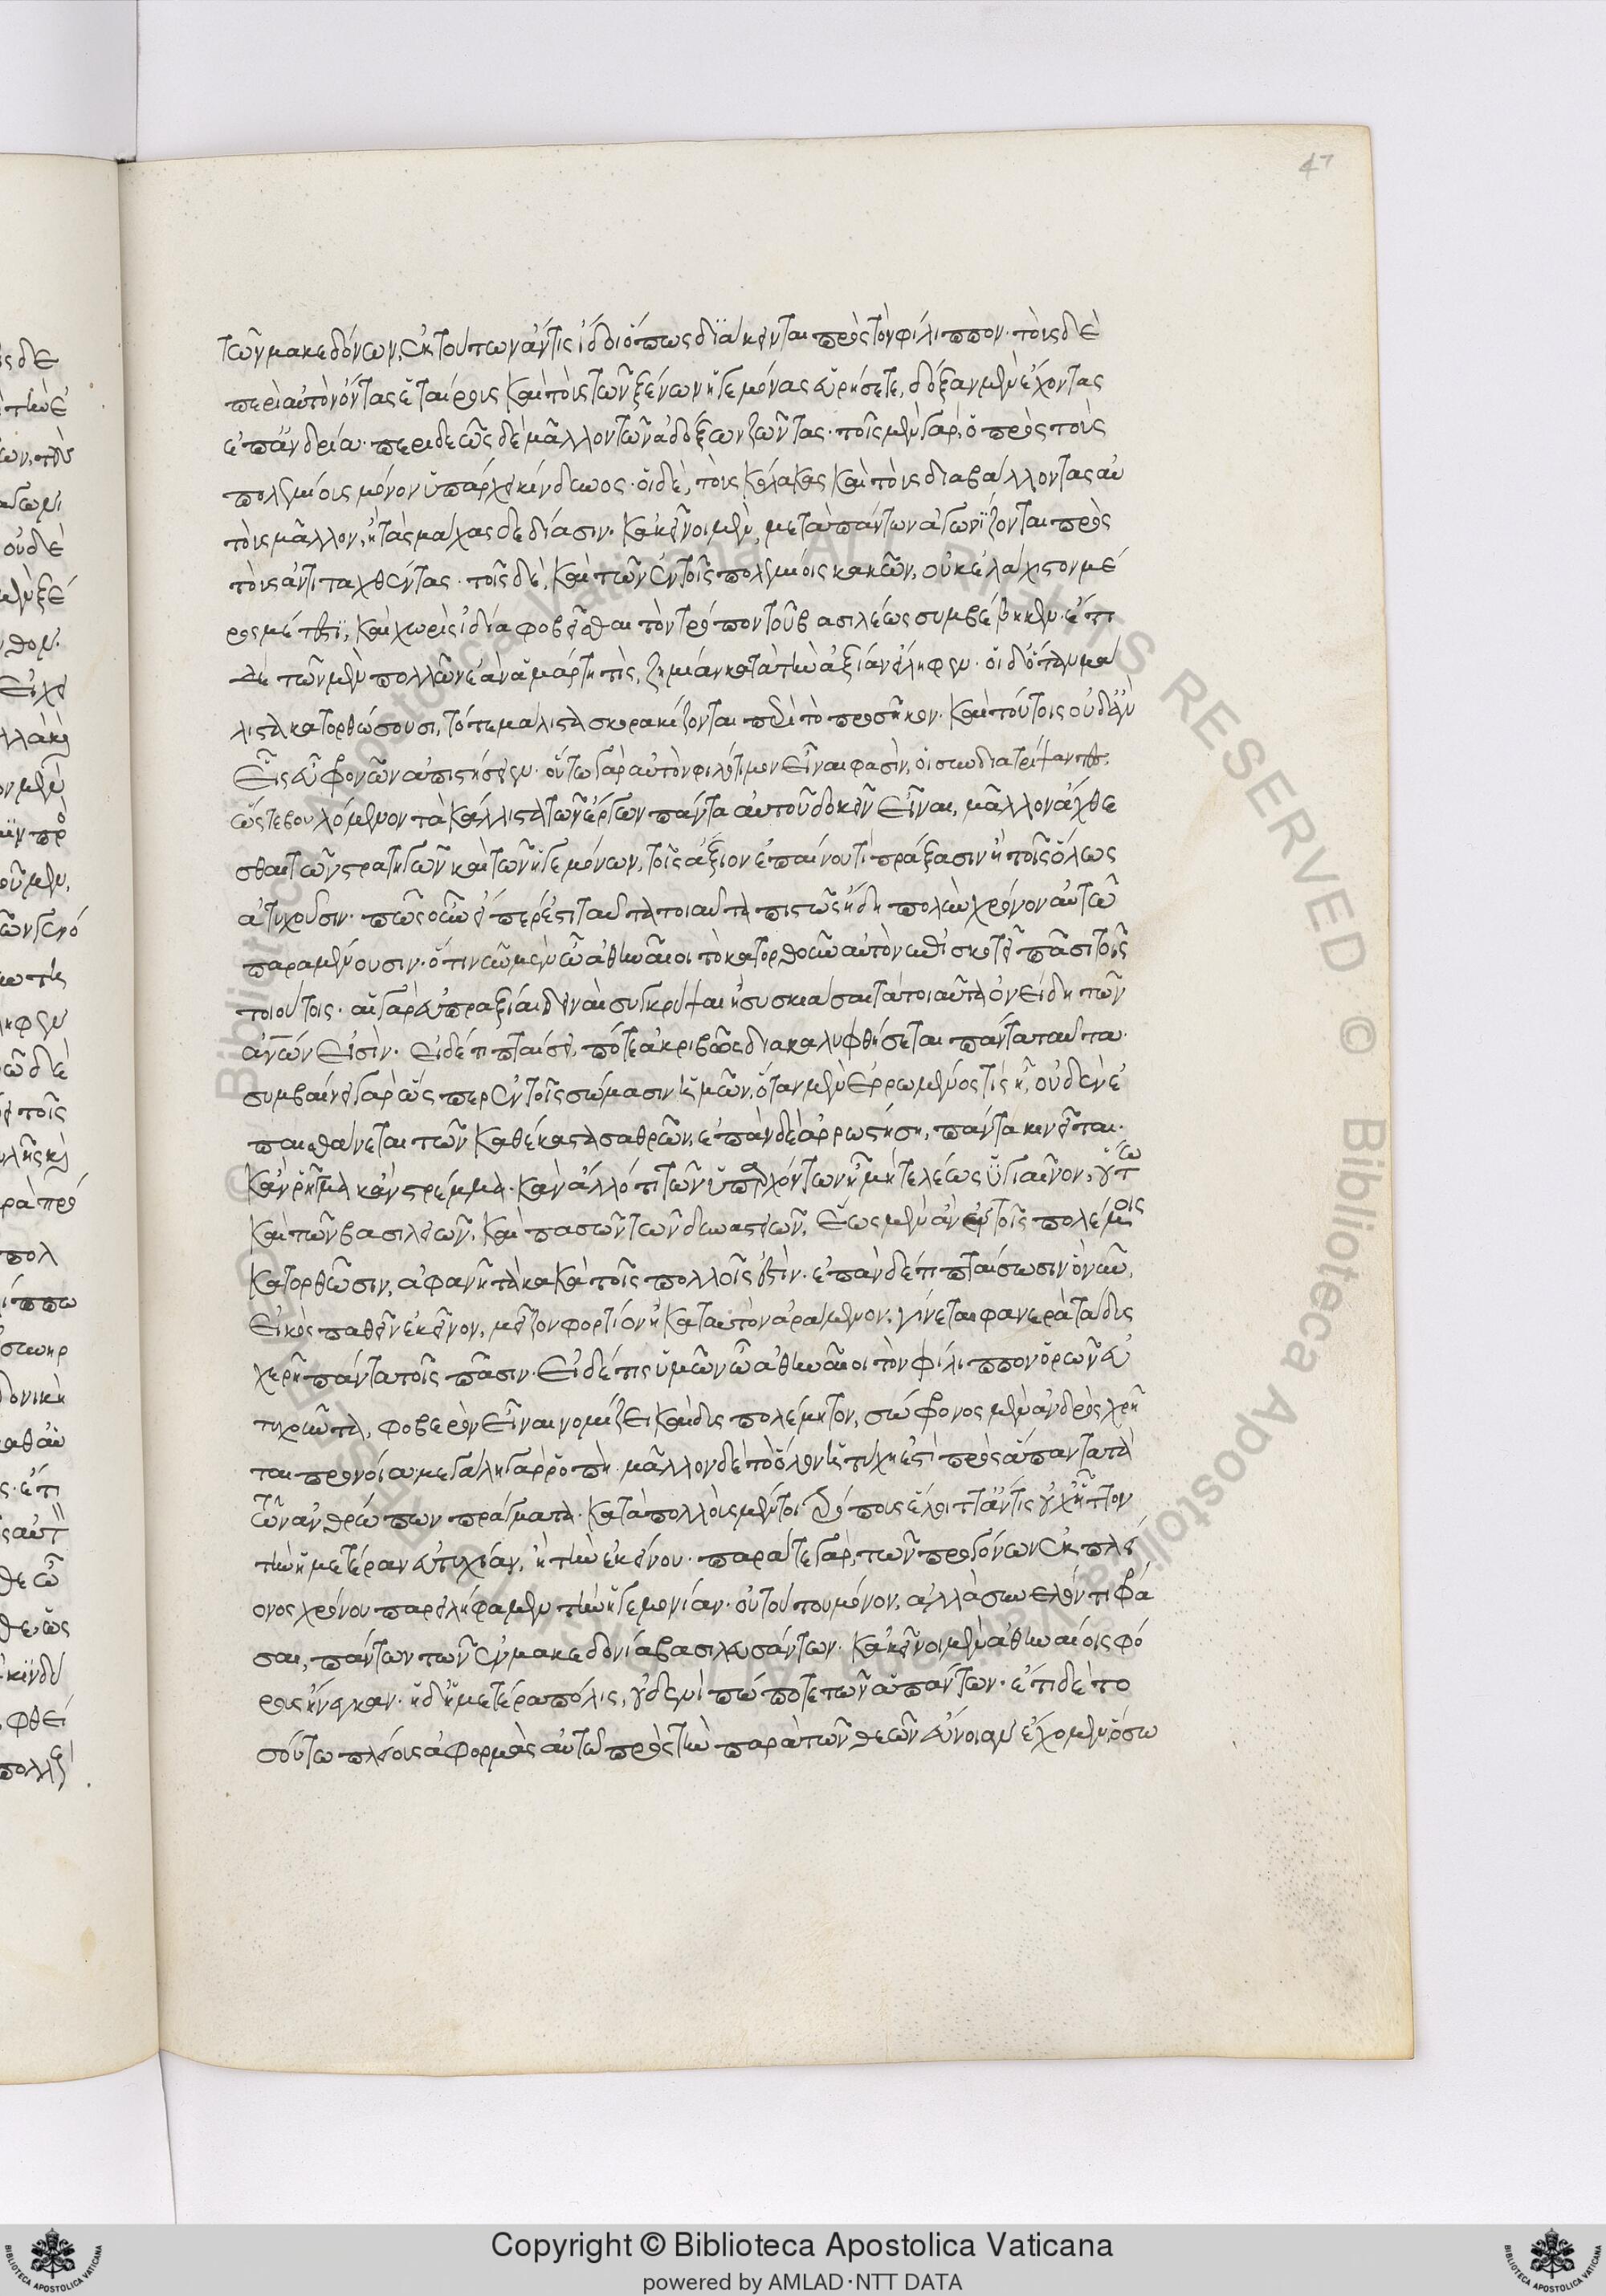 47
τῶν μακεδόνων, ἐκ τούτων ἄν τις ἴδοι ὅπως διάκεινται πρὸς τὸν φίλιππον· τοὺς δὲ
περὶ αὐτὸν ὄντας ἑταίρους καὶ τοὺς τῶν ξένων ἡγεμόνας εὑρήσετε, δόξαν μὲν ἔχοντας
ἐπ' ἀνδρία· περιδεῶς δὲ μᾶλλον τῶν ἀδόξων ζῶντας· τοῖς μὲν γὰρ, ὁ πρὸς τοὺς
πολεμίους μόνον ὑπάρχει κίνδυνος· οἱ δὲ, τοὺς κόλακας καὶ τοὺς διαβάλλοντας αὐ
τοὺς μᾶλλον, ἢ τὰς μάχας δεδίασιν. κἀκεῖνοι μὲν, μετὰ πάντων ἀγωνίζονται πρὸς
τοὺς ἀντιταχθέντας· τοῖς δὲ, καὶ τῶν ἐν τοῖς πολεμίοις κακῶν, οὐκ ἐλάχιστον μέ
ρος μέτεστι, καὶ χωρὶς ἰδία φοβεῖσθαι τὸν τρόπον τοῦ βασιλέως συμβέβηκεν· ἔτι
δὲ τῶν μὲν πολλῶν ἐὰν ἁμάρτη τὶς, ζημίαν κατὰ τὴν ἀξίαν εἴληφεν· οἱ δ' ὅταν μά
λιστα κατορθώσουσι, τότε μάλιστα σκορακίζονται παρὰ τὸ προσῆκον. καὶ τούτοις οὐδ' ἂν
εἷς εὖ φρονῶν ἀπιστήσειεν· οὕτω γὰρ αὐτὸν φιλότιμον εἶναι φασὶν, οἱ συνδιατρίψαντες,
ὥστε βουλόμενον τὰ κάλλιστα τῶν ἔργων πάντα αὐτοῦ δοκεῖν εἶναι, μᾶλλον ἄχθε
σθαι τῶν στρατηγῶν καὶ τῶν ἡγεμόνων, τοῖς ἄξιον ἐπαίνου τὶ πράξασιν ἢ τοῖς ὅλως
ἀτυχοῦσιν. πῶς οὖν εἴπερ ἐστὶ ταῦτα τοιαῦτα πιστῶς ἤδη πολὺν χρόνον αὐτῶ
παραμένουσιν· ὅτι νῦν μὲν ὦ ἀθηναῖοι τὸ κατορθοῦν αὐτὸν ἐπισκοτεῖ πᾶσι τοῖς
τοιούτοις· αἱ γὰρ εὐπραξίαι δειναὶ συγκρύψαι ἢ συσκιάσαι τὰ τοιαῦτα ὀνείδη τῶν
ἀνῶν εἰσὶν. εἰ δέ τι πταίσει, τότε ἀκριβῶς διακαλυφθήσεται πάντα ταῦτα·
συμβαίνει γὰρ ὥσπερ ἐν τοῖς σώμασιν ἡμῶν, ὅταν μὲν ἐρρωμένος τὶς ἦ, οὐδὲν ἐ
παισθάνεται τῶν καθέκαστα σαθρῶν, ἐπὰν δὲ ἀρρωστήση, πάντα κινεῖται.
κἂν ῥῆγμα κἂν στρέμμα. κἂν ἄλλό τι τῶν ὑπαρχόντων ἦ μὴ τελέως ὑγιαῖνον, οὕτω
καὶ τῶν βασιλειῶν, καὶ πασῶν τῶν δυναστειῶν, ἕως μὲν ἂν ἐν τοῖς πολέμοις
κατορθῶσιν, ἀφανῆ τὰ κακὰ τοῖς πολλοῖς ἐστὶν· ἐπὰν δέ τι πταίσωσιν ὃ νῦν,
εἰκὸς παθεῖν ἐκεῖνον, μεῖζον φορτίον ἢ καταυτὸν ἀράμενον, γίνεται φανερὰ τὰ δυς
χερῆ πάντα τοῖς πᾶσιν. εἰ δέ τις ὑμῶν ὦ ἀθηναῖοι τὸν φίλιππον ὁρῶν εὐ
τυχοῦντα, φοβερὸν εἶναι νομίζει καὶ δυσπολέμητον, σώφρονος μὲν ἀνδρὸς χρῆ
ται προνοία· μεγάλη γὰρ ῥοπὴ. μᾶλλον δὲ τὸ ὅλον ἡ τύχη ἐστὶ πρὸς ἅπαντα τὰ
τῶν ἀνθρώπων πράγματα. κατὰ πολλοὺς μέντοι τρόπους ἕλοιτ' ἄν τις οὐχ ἧττον
τὴν ἡμετέραν εὐτυχίαν, ἢ τὴν ἐκείνου· παρά τε γὰρ, τῶν προγόνων ἐκ πλεί
ονος χρόνου παρειλήφαμεν τὴν ἡγεμονίαν· οὐ τούτου μόνον, ἀλλὰ συνελόντι φρά
σαι, πάντων τῶν ἐν μακεδονία βασιλευσάντων. κἀκεῖνοι μὲν ἀθηναίοις φό
ρους ἤνεγκαν· ἡ δ' ἡμετέρα πόλις, οὐδενὶ πώποτε τῶν ἁπάντων· ἔτι δὲ το
σούτω πλείους ἀφορμὰς αὐτοῦ πρὸς τὴν παρὰ τῶν θεῶν εὔνοιαν ἔχομεν, ὅσω
Copyright © Biblioteca Apostolica Vaticana
powered by AMLAD·NTT DATA